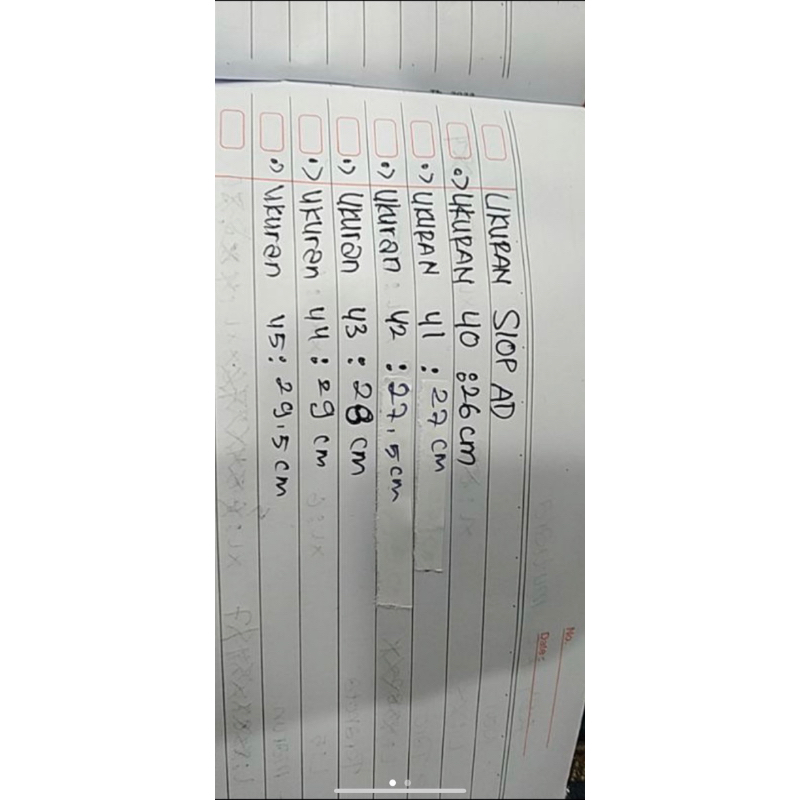 No.
Date:
UKURAN SlOP AD
•) UKURAN 40 : 26 cm
•) UKURAN 41 : 27 cm
•) Ukuran 42 : 27,5 cm
•) Ukuran 43 : 28 cm
•) Ukuran 44 : 29 cm
•) Ukuran 45 : 29,5 cm